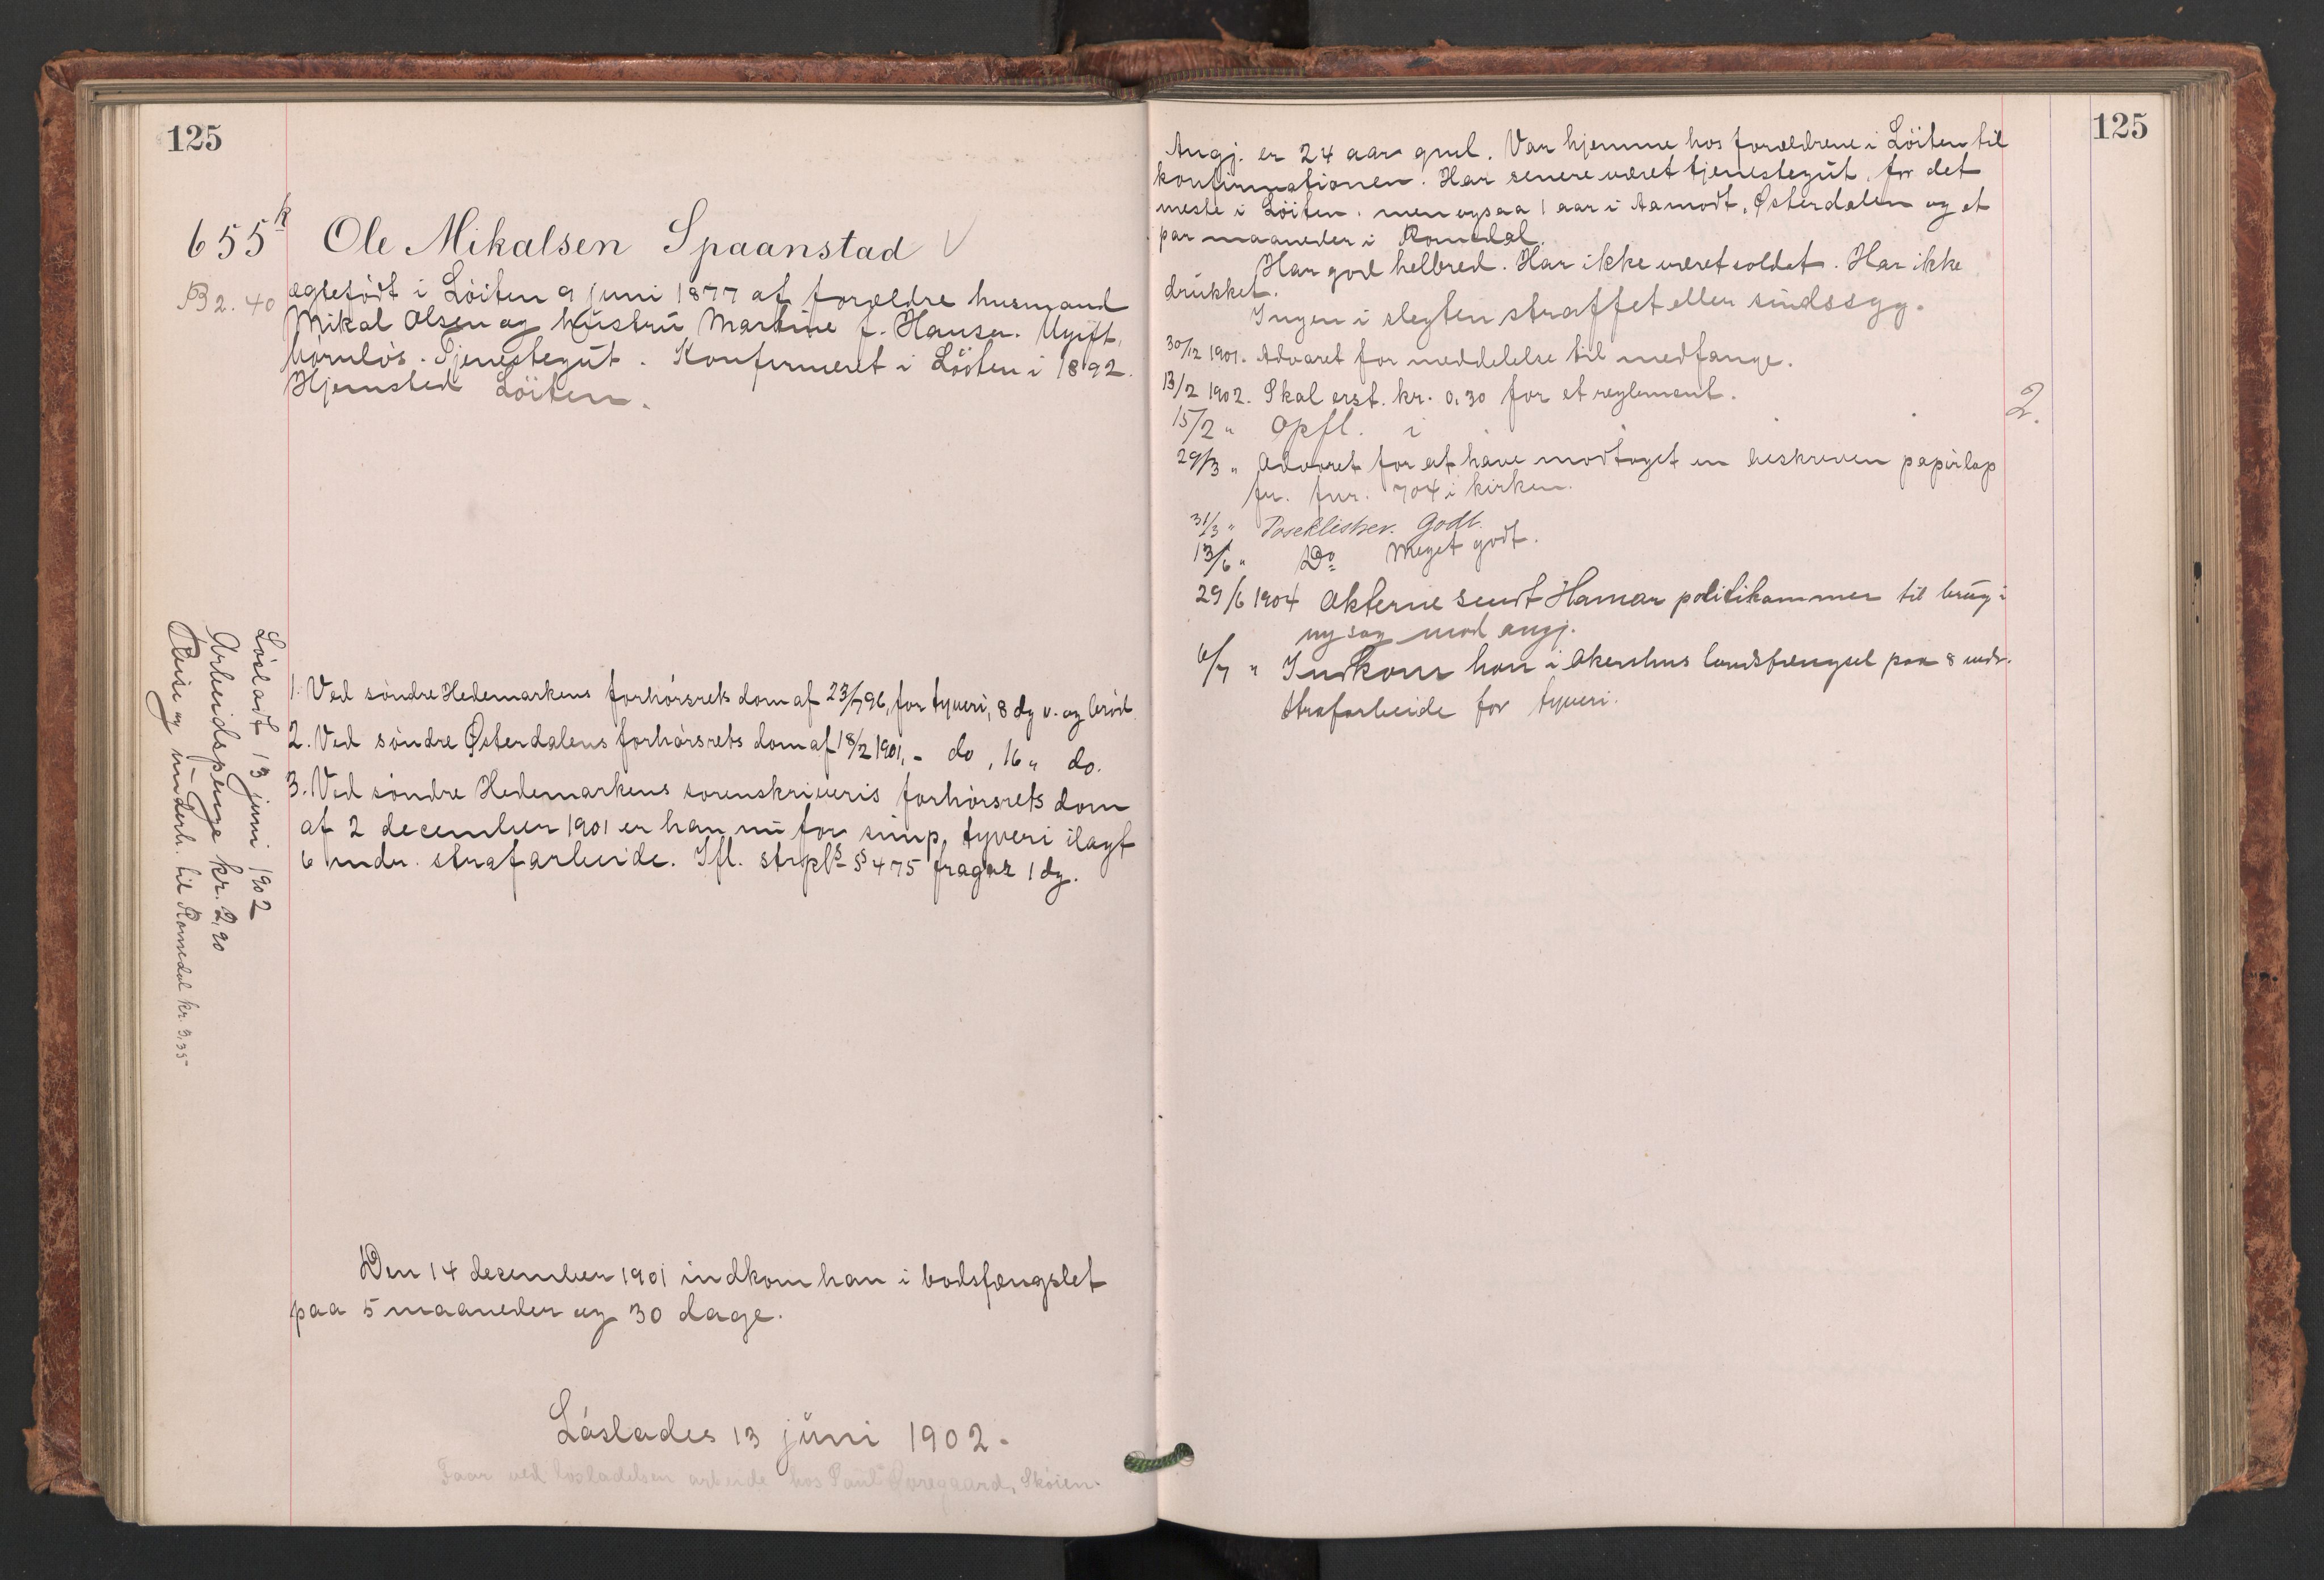 125
655 k
Ole Mikalsen Spaanstad
B 2. 40
egtefødt i Løiten 9 juni 1877 af forældre husmand
Mikal Olsen og hustru Martine f. Hansen. Ugift,
børnløs. Tjenestegut. Konfirmeret i Løiten i 1892.
Hjemsted Löiten.
Løsladt 13 juni 1902
Arbeidspenge kr. 2,90
Reise og underh. til Romedal kr. 3,35
1. Ved søndre Hedemarkens forhørsrets dom af 23/7 96, for tyveri, 8 dg v. og brød.
2. Ved søndre Østerdalens forhørsrets dom af 18/2 1901, - do, 16 " do.
3. Ved søndre Hedemarkens sorenskriveris forhørsrets dom
af 2 december 1901 er han nu for simp. tyveri ilagt
6 mdr. strafarbeide. Ifl. strpls § 475 fragaar 1 dg.
Den 14 desember 1901 indkom han i bodsfængslet
paa 5 maaneder og 30 dage.
Løslades 13 juni 1902.
Faar ved løsladelsen arbeide hos Paul Skøien.
125
Angj. er 24 aar gml. Var hjemme hos forældrene i Löiten til
konfirmationen. Har senere været tjenestegut, for det
meste i Löiten, men ogsaa 1 aar i Aamodt, Østerdalen og et
par maaneder i Romedal.
Har god helbred. Har ikke været soldat. Har ikke
drukket.
Ingen i slegten straffet eller sindssyg.
30/12 1901. Advaret for meddelelse til medfange.
13/2 1902. Skal erst. kr. 0,30 for et reglement. 2.
15/2 " Opfl. i
29/3 " Advaret for at have modtaget en beskreven papirlap
fr. fnr. 704 i kirken.
31/3 " Poseklistrer. Godt.
13/6 " Do Meget godt.
29/6 1904 Akterne sendt Hamar politikammer til brug i
ny sag mod angj.
6/7 " Indkom han i Akershus landsfængsel paa 8 mdr.
strafarbeide for tyveri.